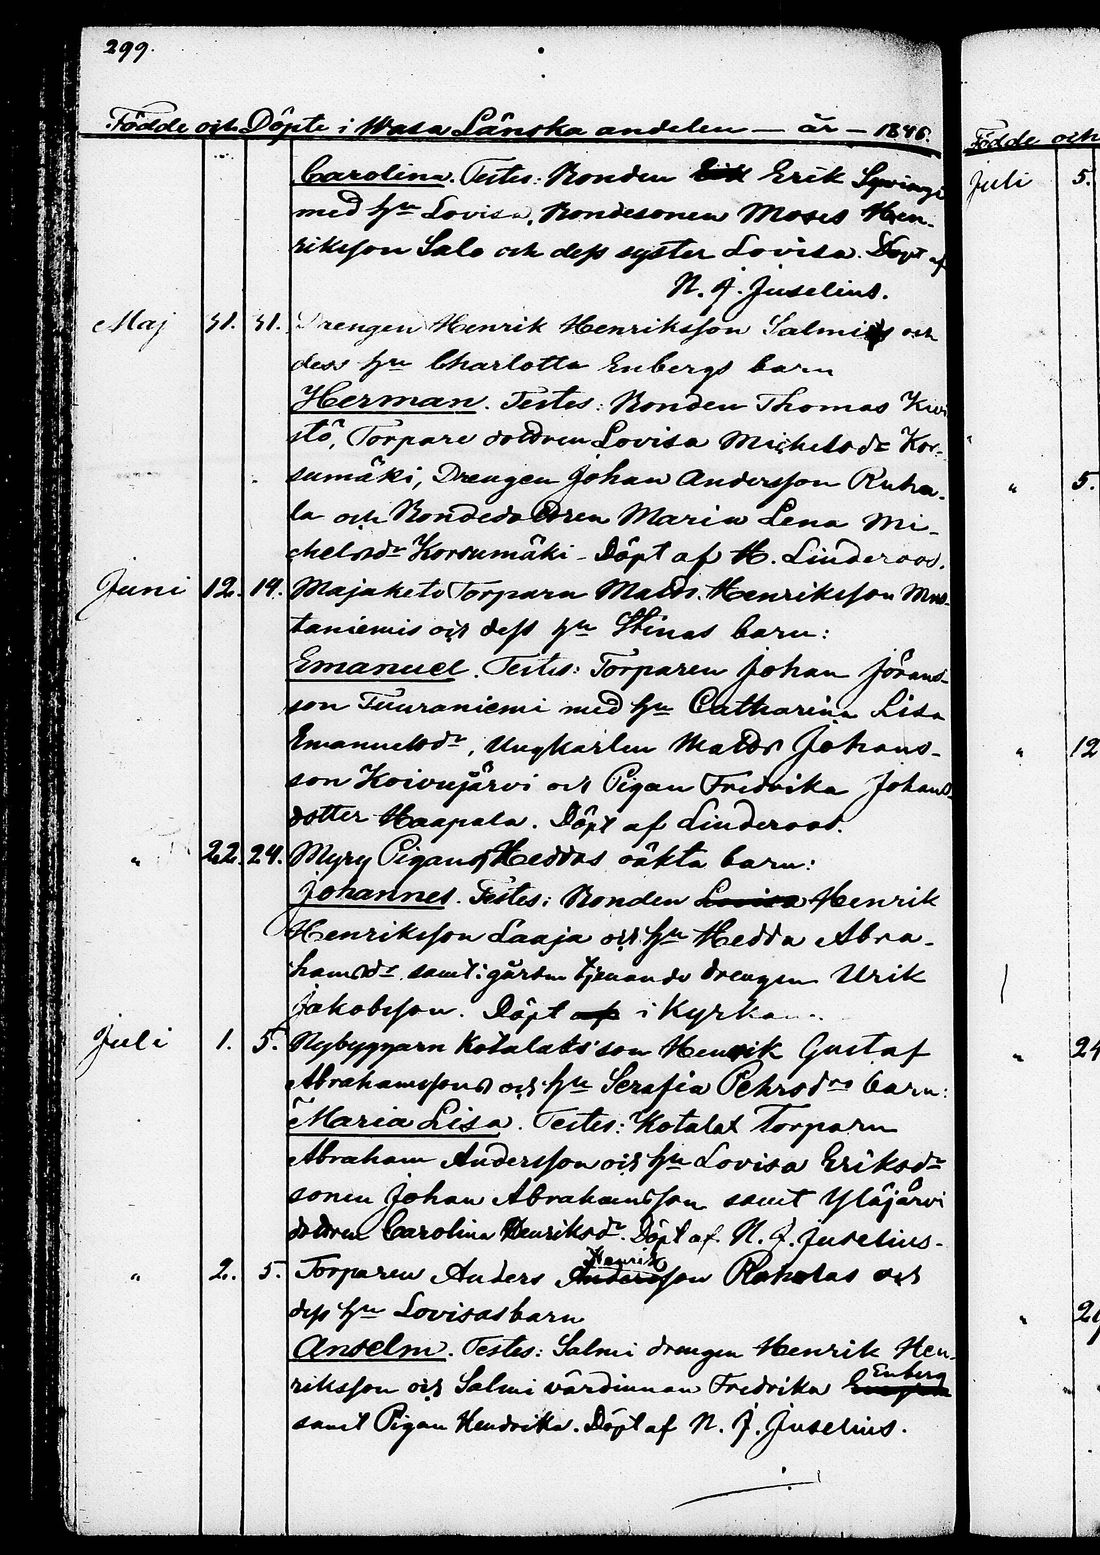 299.
Födde och Döpte i Wasa Länska andelen — år — 1846.
Carolina. Testes: Bonden Erik
med hu Lovisa, Bondesonen Moses Hen-
riksson Salo och dess syster Lovisa. Döpt af
N. J. Juselius.
Maj 31. 31. Drengen Henrik Henriksson Salmis och
dess hu Charlotta Enbergs barn
Herman. Testes: Bonden Thomas Kivi
stö, Torpare dottren Lovisa Michelsdr Kor-
sumäki, Drengen Johan Andersson Ruha-
la och Bondedottren Maria Lena Mi-
chelsdr Korsumäki - Döpt af H. Linderoos.
Juni 12. 14. Majakets Torparn Matts Henriksson Mus-
taniemis och dess hu Stinas barn:
Emanuel. Testes: Torparen Johan Jörans-
son Tuuraniemi med hu Catharina Lisa
Emanuelsdr, Ungkarlen Matts Johans-
son Koivujärvi och Pigan Fredrika Johans
dotter Haapala. Döpt af Linderoos.
" 22. 24. Myry Pigans Heddas oäkta barn:
Johannes. Testes: Bonden Lovisa Henrik
Henriksson Laaja och hu Hedda Abra-
hamsdr samt i gården tjenande drengen Urik
Jakobsson. Döpt af i Kyrkan.
Juli 1. 5. Nybyggarn Kotalats son Henrik Gustaf
Abrahamssons och hu Serafia Pehrsdrs barn:
Maria Lisa. Testes: Kotalax Torparn
Abraham Andersson och hu Lovisa Eriksdr
sonen Johan Abrahamsson samt Yläjärvi
dottren Carolina Henriksdr. Döpt af N. J. Juselius.
Henrik
" 2. 5. Torparen Anders Andersson Rahalas och
dess hu Lovisas barn
Anselm. Testes: Salmi drengen Henrik Hen-
Enberg
riksson och Salmi värdinnan Fredrika
samt Pigan Hendrika. Döpt af N. J. Juselius.
Födde och
Juli 5.
" 5.
" 12
" 24
"
"